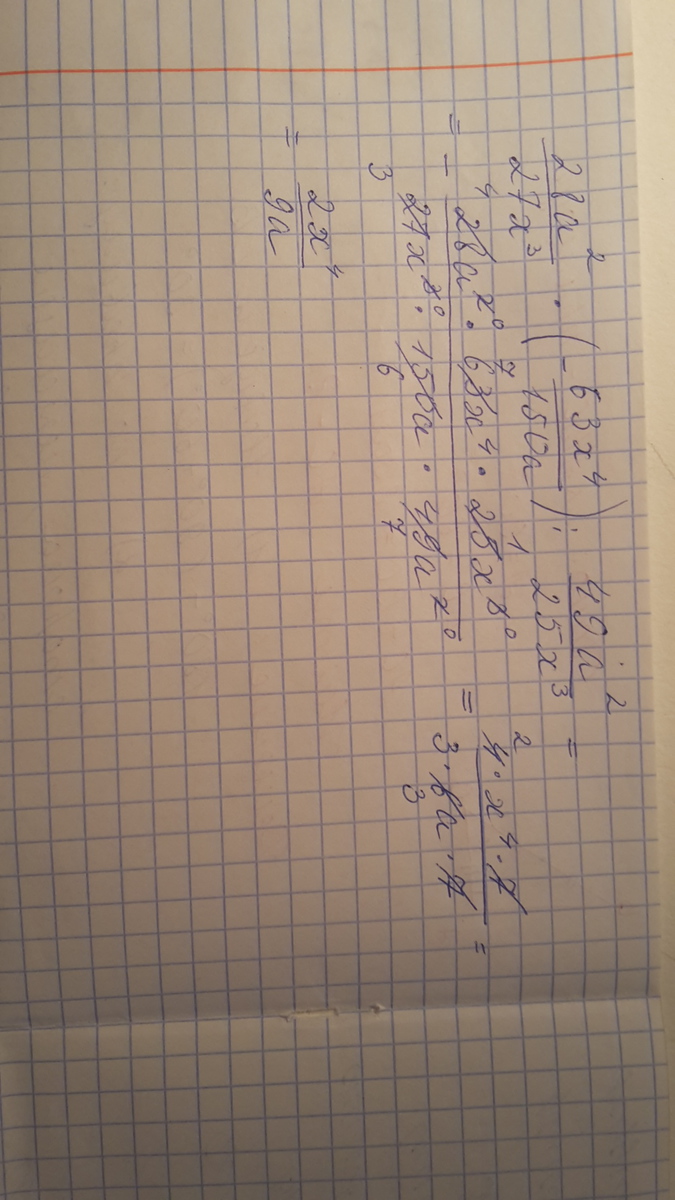 28a² / 27x³ · (- 63x⁴ / 150a) : 49a² / 25x³ =
= - 28a² ⁰ · 63x⁴ · 25x³ ⁰ / 27x³ ⁰ · 150a · 49a² ⁰ = 4 · x⁴ · 7 / 3 · 6a · 7 =
4 7 1 2
3 6 7 3
= 2x⁴ / 9a